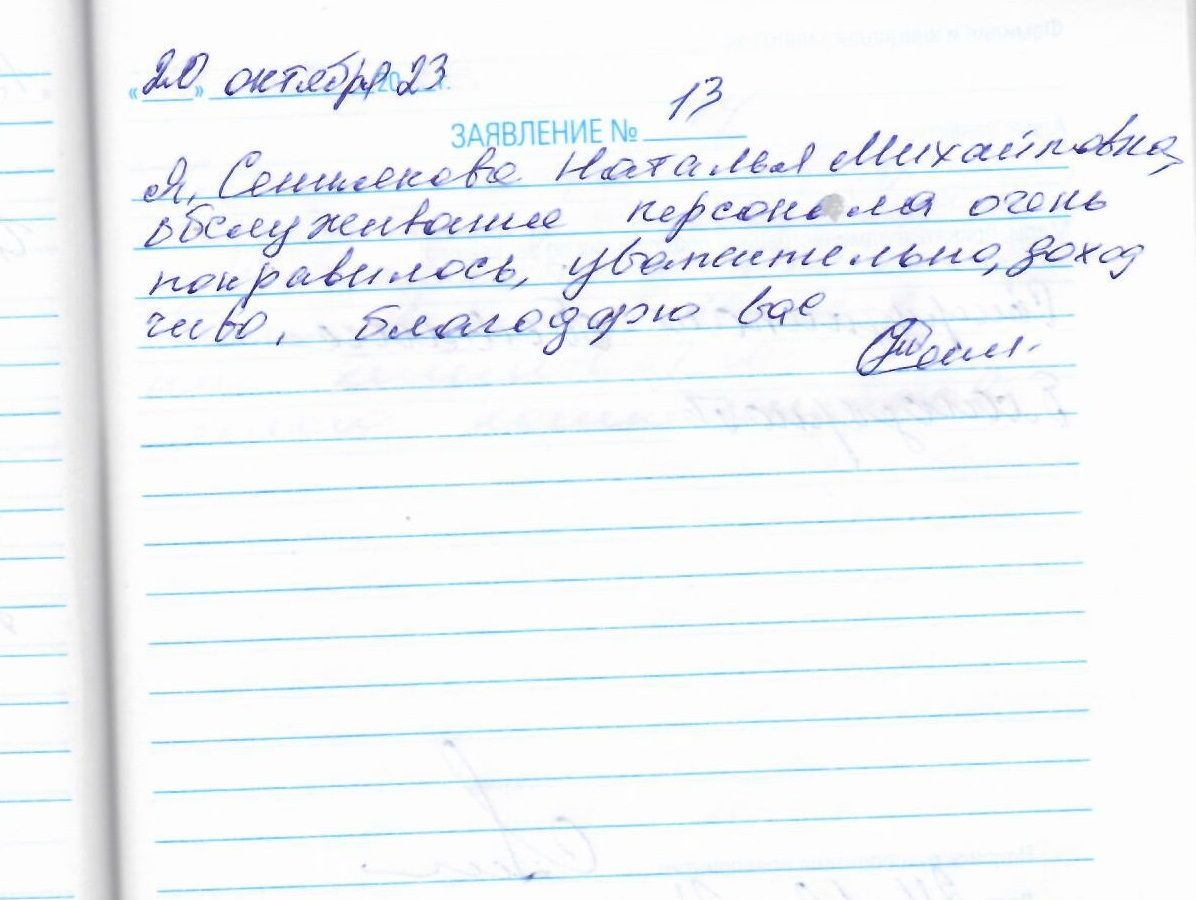 «20» октября 2023 г.
ЗАЯВЛЕНИЕ № 13
Я, Наталья Михайловна,
обслуживание персонала очень
понравилось, уважительно, доход
чиво, благодарю вас